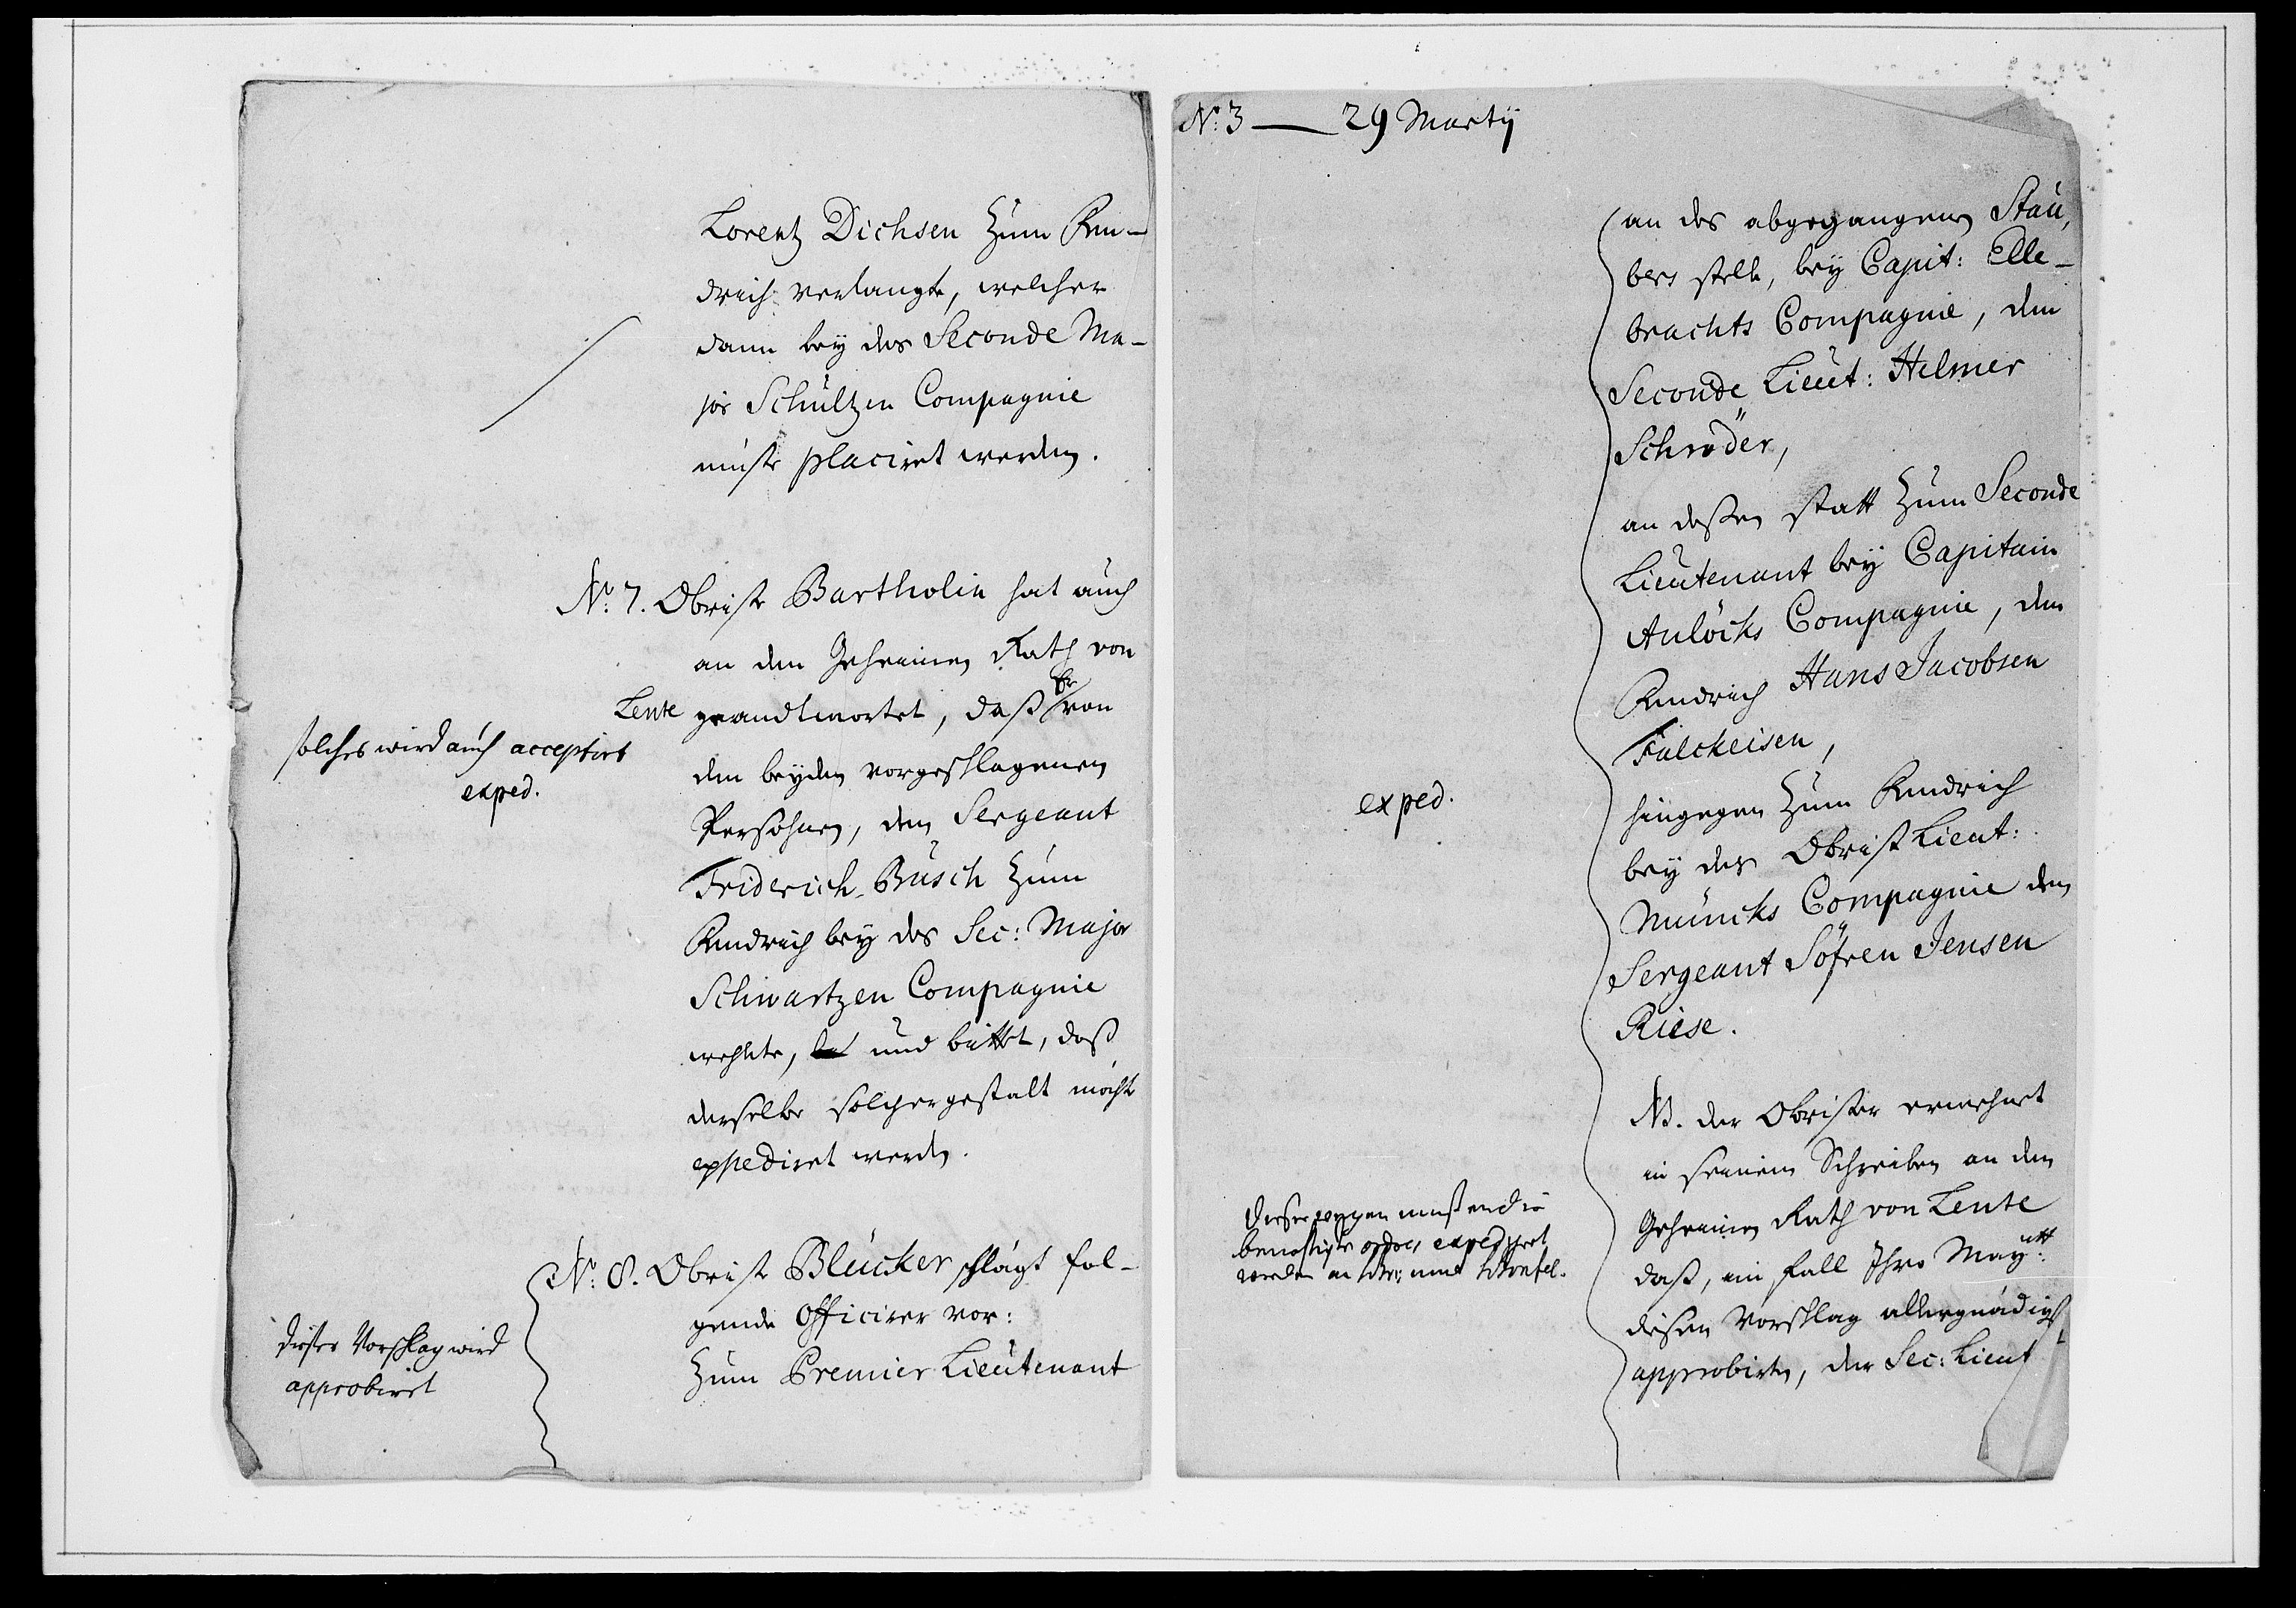 Lorentz Dichsen zum Fen-
drich verlangte, welcher
dann bey des Seconde Ma-
jor Schultzen Compagnie
müste placiret werden.
No: 7. Obrister Bartholin hat auch
an den Geheimen Rath von
Lente geandtwortet, daß Er von
den beyden vorgeschlagenen
Persohnen, den Sergeant
Friderich Busch zum
Fendrich bey des Sec: Major
Schwartzen Compagnie
wehlte, und bittet, daß
derselbe solchergestalt möchte
expediret werden.
solches wird auch acceptirt
exped.
No: 8. Obrister Blücker schlägt fol-
gende Officirer vor:
Zum Premier Lieutenant
dieser Vorschlag wird
approbiret
No: 3 — 29 Martij
an des abgegangenen Stau,
bers stelle, bey Capit: Elle-
brachts Compagnie, den
Seconde Lieut: Helmer
Schröder,
an deßen statt zum Seconde
Lieutenant bey Capitain
Anlöcks Compagnie, den
Fendrich Hans Jacobsen
Falckeisen,
hingegen zum Fendrich
bey des Obrist Lieut:
Müncks Compagnie den
Sergeant Söfren Jensen
Riese.
exped.
NB. der Obrister erwehnet
in seinem Schreiben an den
Geheimen Rath von Lente
daß, im fall Ihro Maytt:
diesen Vorschlag allergnädigst
approbirten, der Sec: Lieut
dieserwegen müßen die
benöthigte ordres expediret
werden an